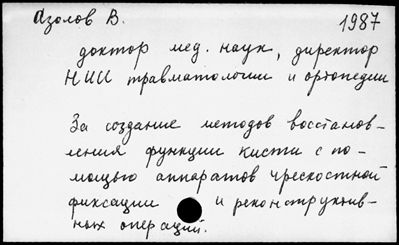 Азолов В.
1987
доктор мед. наук, директор
НИИ травматологии и ортопедии
За создание методов восстанов-
ления функции кисти с по-
мощью аппаратов чрескостной
фиксации и реконструктив-
ных операций.